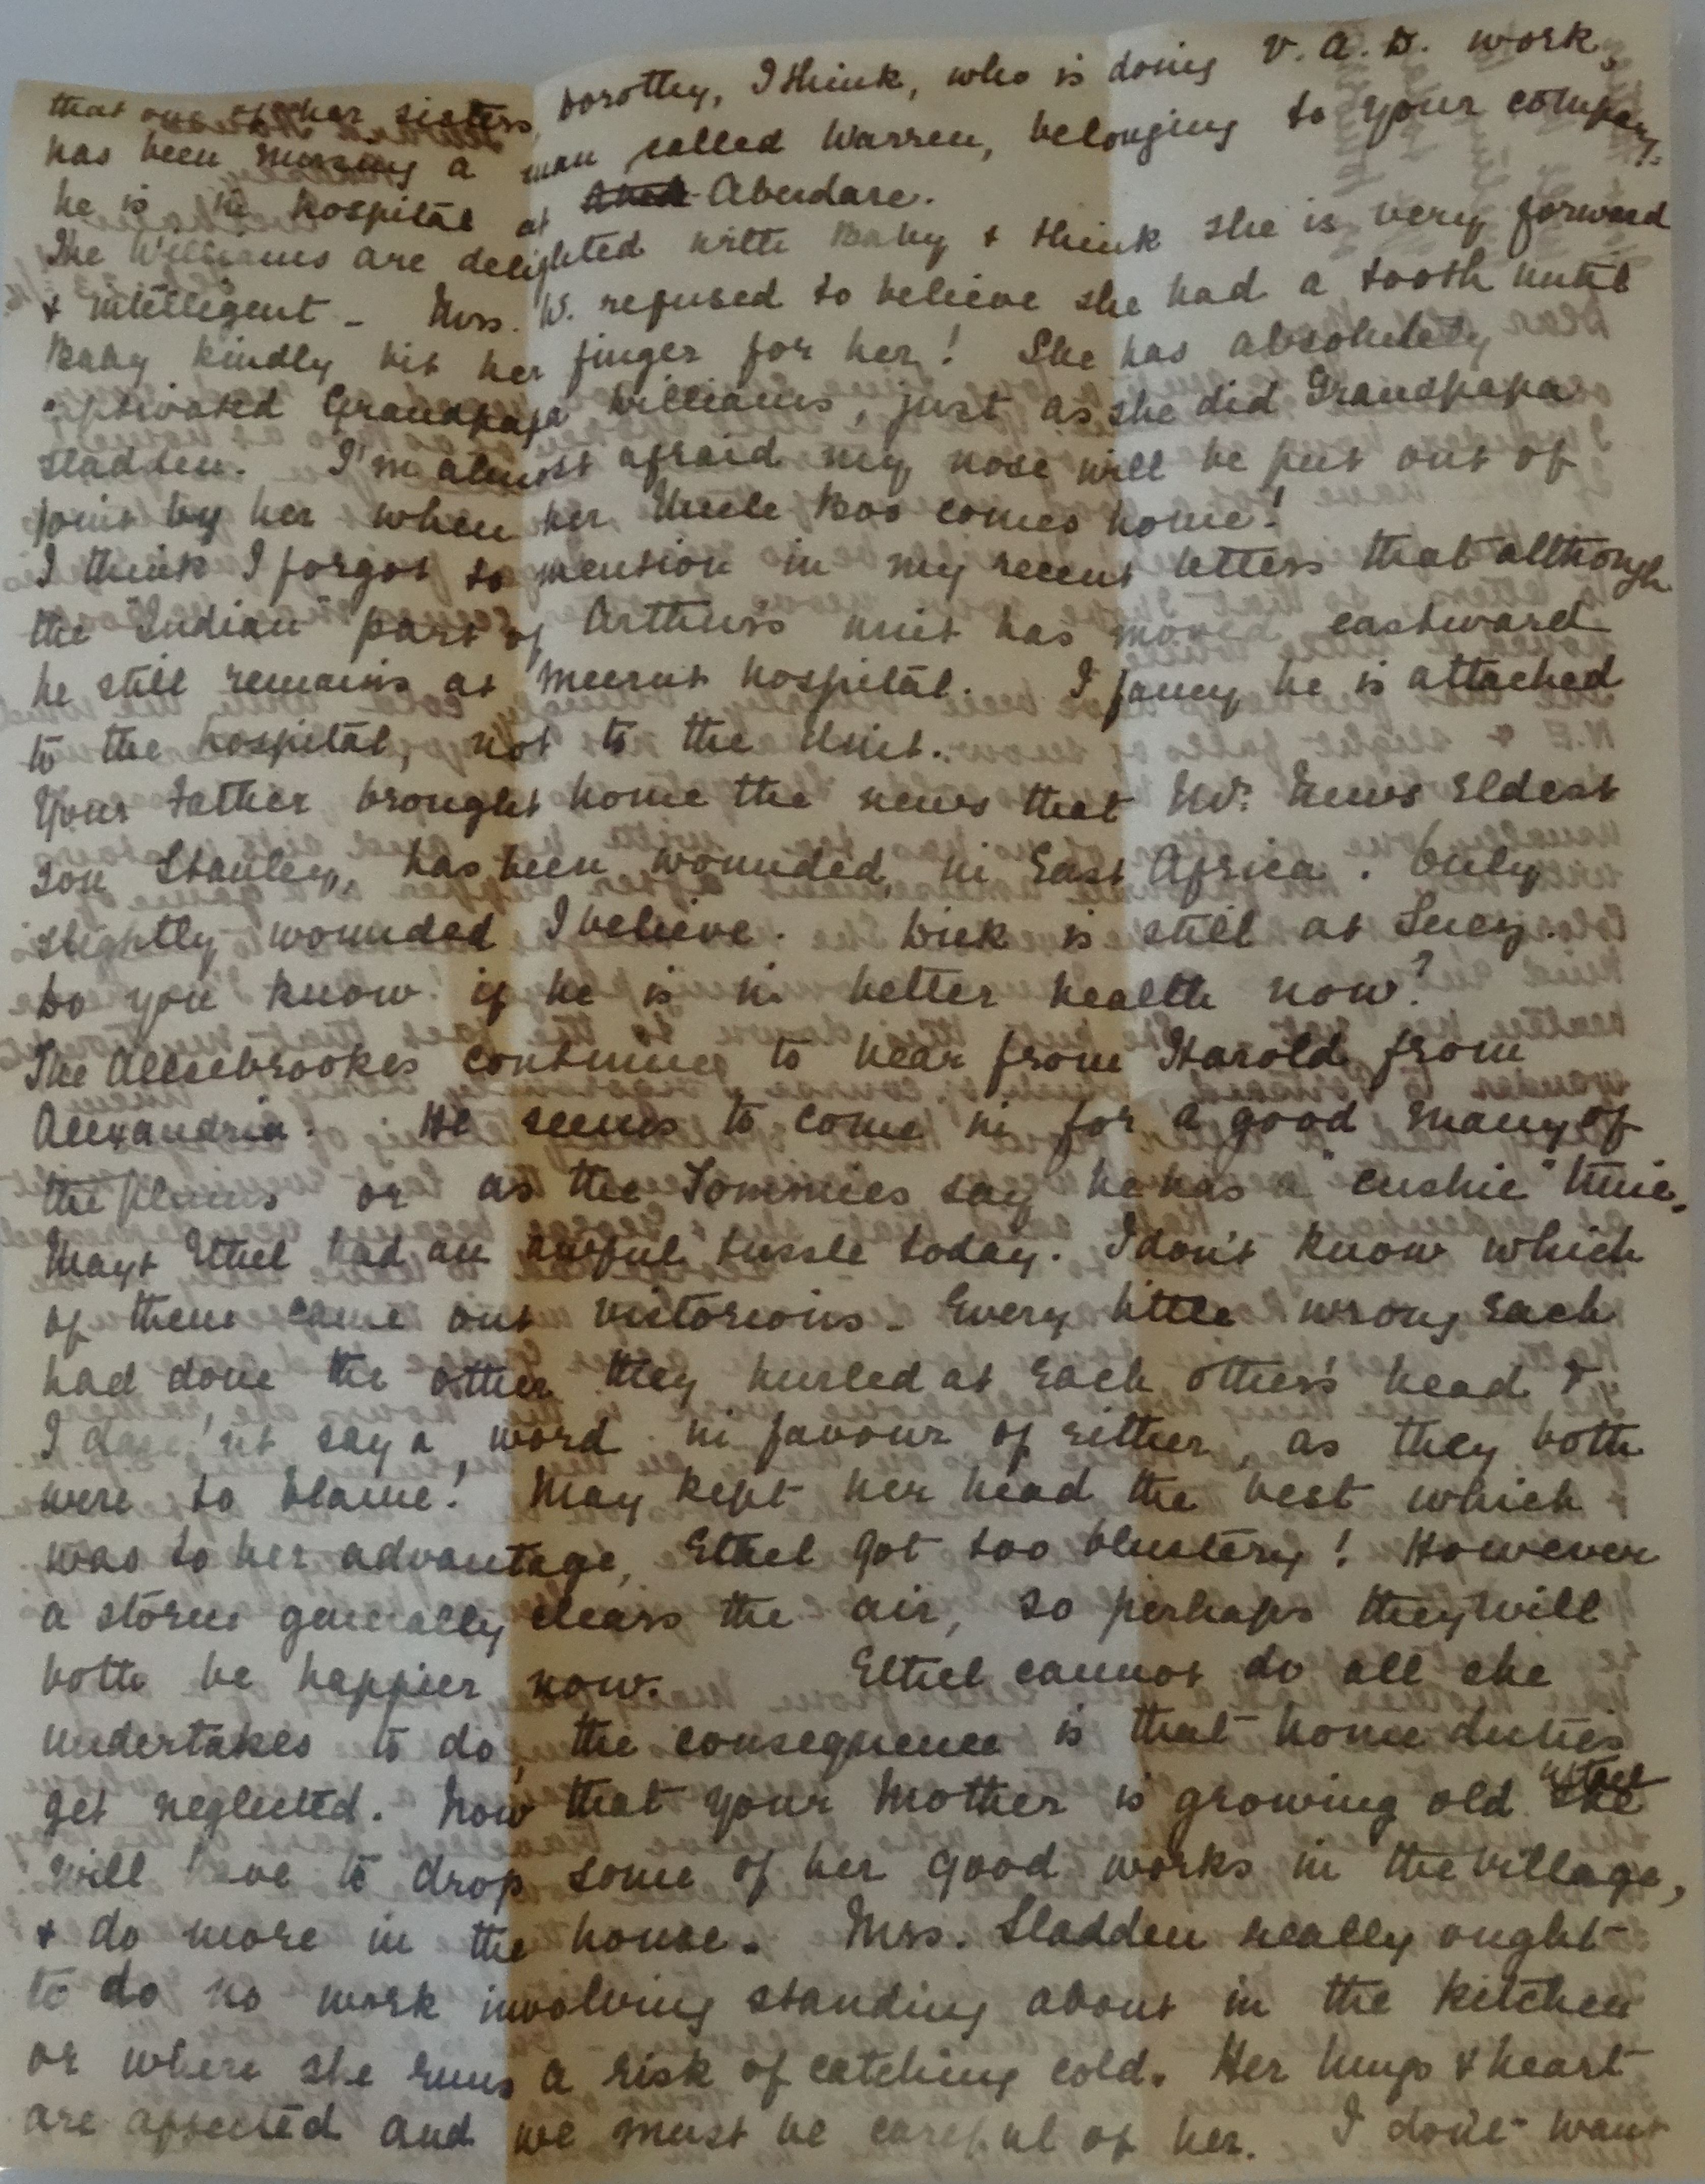 that one of her sisters, Dorothy, I think, who is doing V.A.D. work,
has been nursing a man called Warren, belonging to your company.
he is in hospital at Aberdare.
The Williams are delighted with Baby & think she is very forward
& intelligent - Mrs. W. refused to believe she had a tooth until
Baby kindly bit her finger for her! She has absolutely
captivated Grandpapa Williams, just as she did Grandpapa
Sladden. I'm almost afraid my nose will be put out of
joint by her when her Uncle Boo comes home!
I think I forgot to mention in my recent letters that although
the "Indian" part of Arthur's unit has moved eastward
he still remains at Meerut hospital. I fancy he is attached
to the hospital, not to the Unit.
Your Father brought home the news that Mr. New's Eldest
son Stanley, has been wounded, in East Africa. Only
slightly wounded I believe. Dick is still at Suez.
Do you know if he is in better health now?
The Allsebrookes continue to hear from Harold from
Alexandria. He seems to come in for a good many of
the plums or as the Tommies say he has a "cushie" time.
May & Ethel had an awful tussle today. I don't know which
of them came out victorious - Every little wrong Each
had done the other they hurled at Each other's head &
I dare'nt say a word in favour of Either, as they both
were to blame! May kept her head the best which
was to her advantage, Ethel got too blustery! However
a storm generally clears the air, so perhaps they will
both be happier now. Ethel cannot do all she
undertakes to do, the consequence is that home duties
get neglected. Now that your Mother is growing old Ethel
will have to drop some of her good works in the village,
& do more in the house. Mrs. Sladden really ought
to do no work involving standing about in the kitchen
or where she runs a risk of catching cold. Her lungs & heart
are affected and we must be careful of her. I don't want